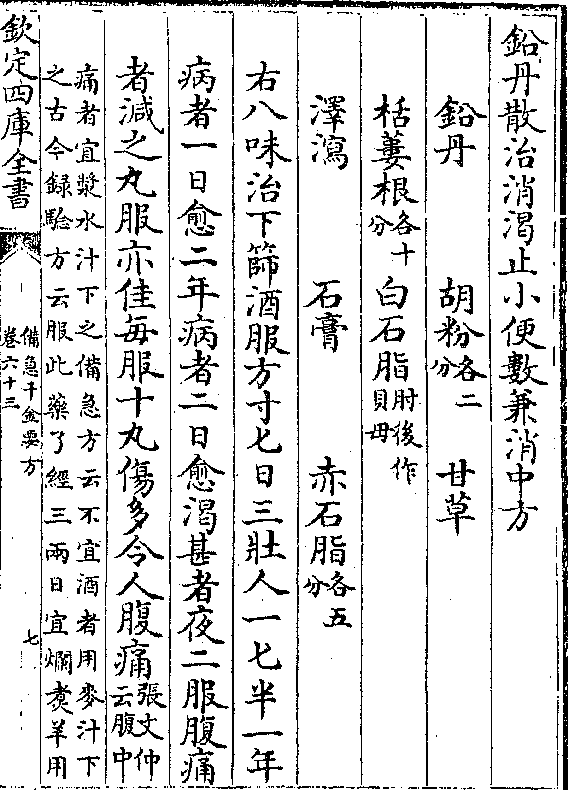 鉛丹散治消渴止小便數兼消中方
鉛丹 胡粉各二分 甘草
栝蔞根各十分 白石脂肘後作貝母
澤瀉 石膏 赤石脂各五分
右八味治下篩酒服方寸匕日三壯人一匕半一年
病者一日愈二年病者二日愈渴甚者夜二服腹痛
者減之丸服亦佳每服十丸傷多令人腹痛張文仲云腹中
痛者宜漿水汁下之備急方云不宜酒者用麥汁下
之古今録驗方云服此藥了經三兩日宜爛煑羊用
欽定四庫全書
備急千金要方
卷六十三
七